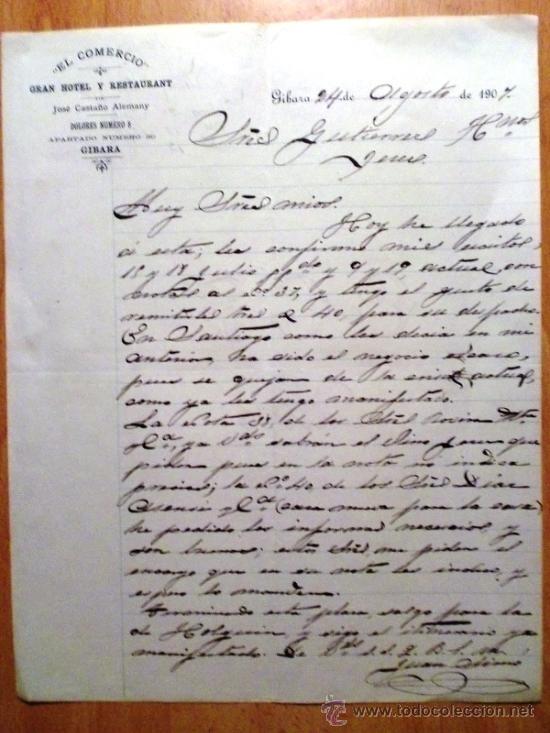 "EL COMERCIO"
GRAN HOTEL Y RESTAURANT
DE
José Castaño Alemany
DOLORES NUMERO 8
APARTADO NUMERO 30
GIBARA
Gibara 24 de Agosto de 1907.
Sres Gutierrez Hnos
Muy Sres mios.
Hoy he llegado
á esta; les confirmo mis escritos
y Julio ppdo y 9 y 19, actual, con
notas al no 37, y tengo el gusto de
remitirles tres á 40, para su despacho.
En Santiago como les decia en mi
anterior, ha sido el negocio escaso,
pues se quejan de la crisis actual,
como ya les tengo manifestado.
La nota 38, de los Sres
ya Vds sabrán el que
piden pues en la nota no indica
precios; la no 40 de los Sres Diaz
Asencio y Ca (casa nueva para la casa)
he pedido los informes necesarios y
son buenos; estos Sres, me piden el
encargo que en su nota les indico, y
espero lo manden.
Terminada esta plaza, salgo para la
de Holguin, y sigo el itinerario ya
manifestado. De Vds. S. S. Q. B. S. M.
Juan
www.todocoleccion.net